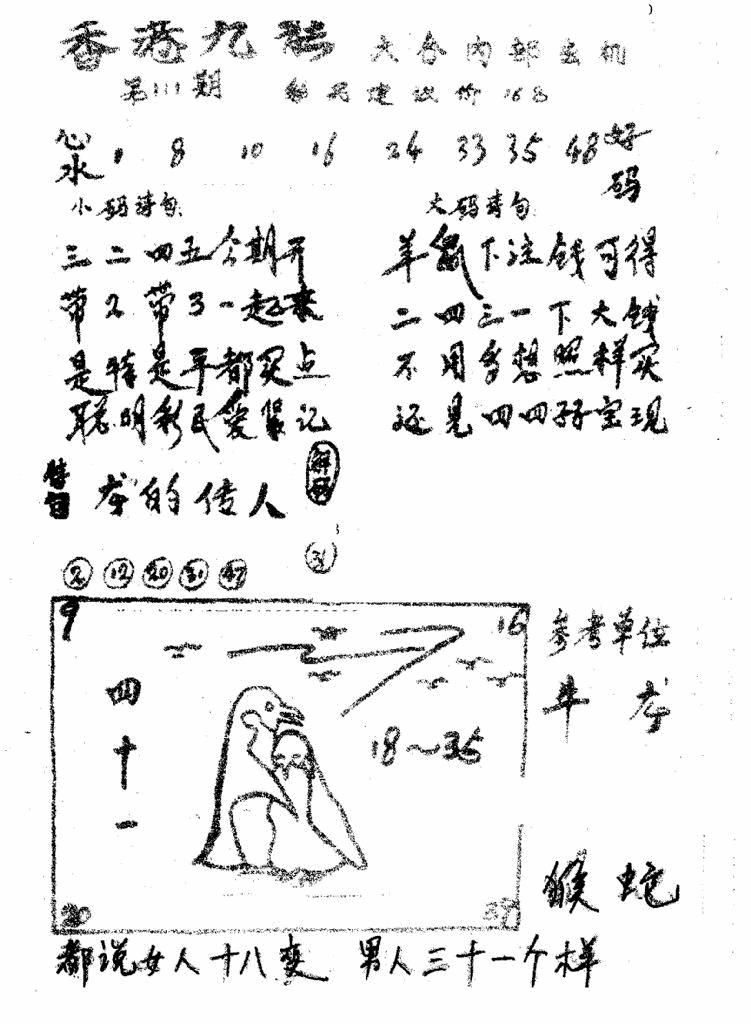 香港九龙 六合内部玄机
第111期 彩民建议价168
心水 1 8 10 16 24 33 35 48 好码
小码诗句
三二四五今期开
带2带3一起来
是特是平都买点
聪明彩民爱登记
大码诗句
羊鼠下注钱可得
二四三一下大钱
不用多想照样买
还见四四孖宝现
特百 龙的传人 解码
31
2 12 20 31 47
9 16
四十一
18～35
20 39
参考单位
牛 龙
猴 蛇
都说女人十八变 男人三十一个样